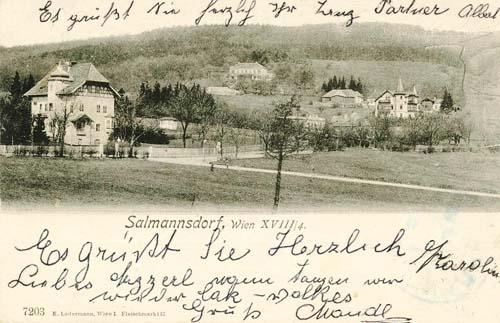 Es grüßt Sie herzlich Ihr Tanz Partner Albert
Salmannsdorf, Wien XVIII/4.
Es grüßt Sie Herzlich Karolin
Liebes Herzerl wann tanzen wir
wieder Lak-walkes
Gruß
7203 K. Ledermann, Wien I. Fleischmarkt 12